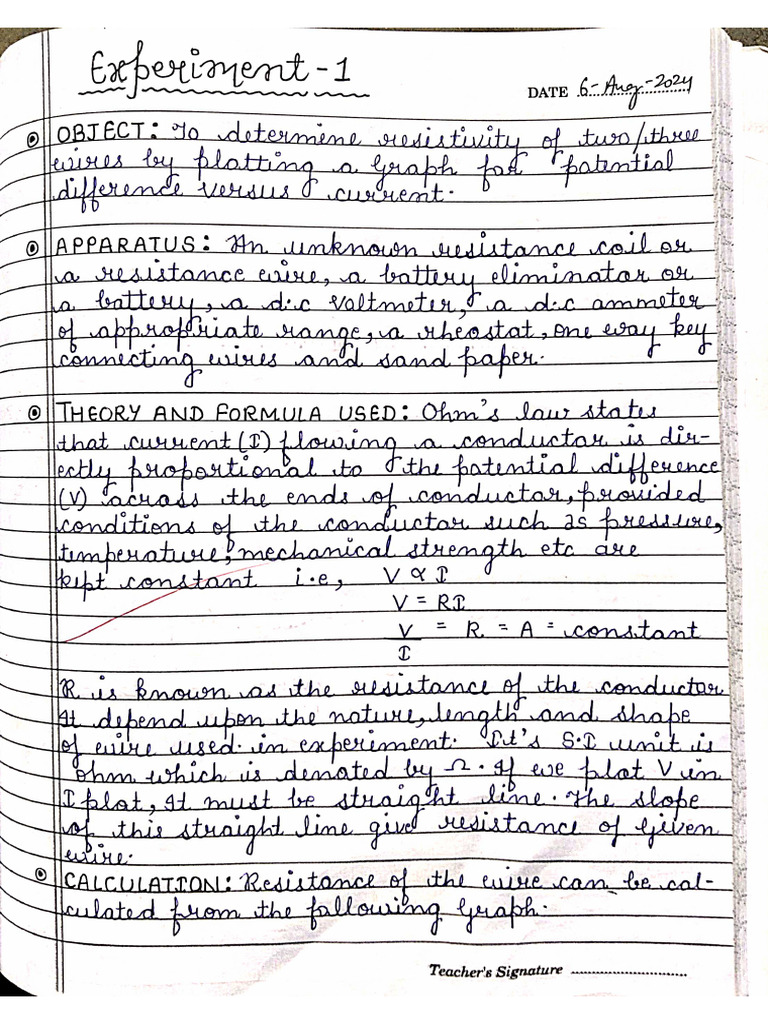 Experiment-1
DATE 6-Aug-2024
OBJECT: To determine resistivity of two/three
wires by plotting a Graph for potential
difference versus current.
APPARATUS: An unknown resistance coil or
a resistance wire, a battery eliminator or
a battery, a d.c voltmeter, a d.c ammeter
of appropriate range, a rheostat, one way key
connecting wires and sand paper.
THEORY AND FORMULA USED: Ohm's law states
that current (I) flowing a conductor is dir-
ectly proportional to the potential difference
(V) across the ends of conductor, provided
conditions of the conductor such as pressure,
temperature, mechanical strength etc are
kept constant i.e, V ∝ I
V = RI
V/I = R = A = constant
R is known as the resistance of the conductor
It depend upon the nature, length and shape
of wire used in experiment. It's S.I unit is
ohm which is denoted by Ω. If we plot V in
I plot, It must be straight line. The slope
of this straight line give resistance of Given
wire.
CALCULATION: Resistance of the wire can be cal-
culated from the following Graph.
Teacher's Signature